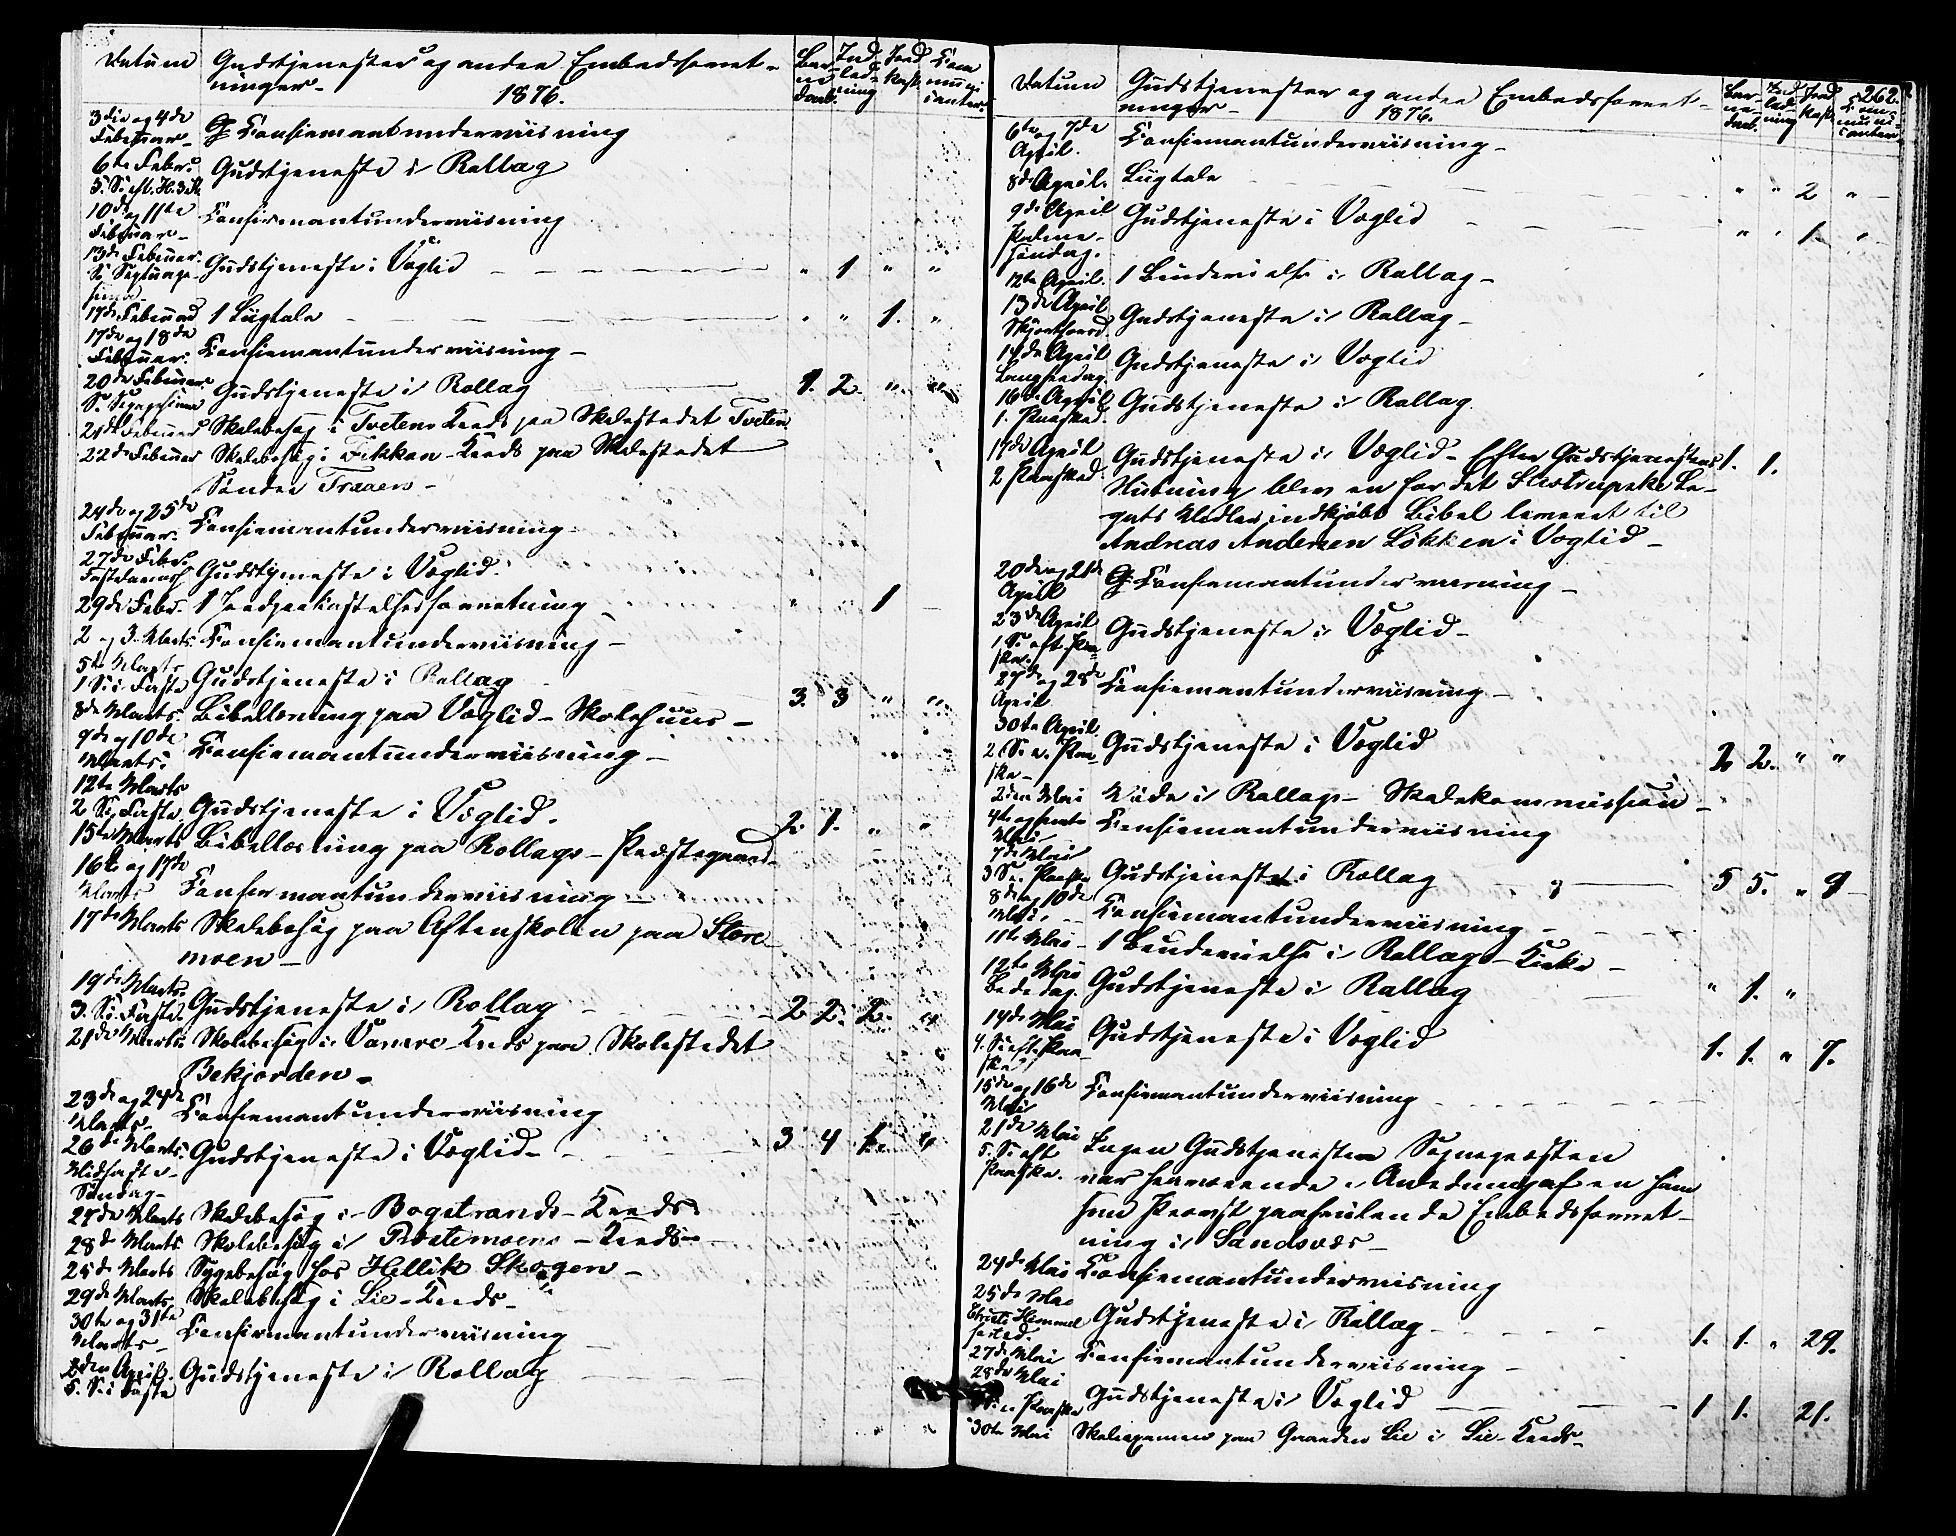 Datum Gudstjenester og andre Embedsforret-
ninger- 1876.
Bar-
ne
daab. Ind
led-
ning Jord
kast. Com
muni
canter.
3die og 4de
Februar- Confirmantunderviisning
6te Febr. Gudstjeneste i Rollag
5. S. eft. H. 3 K.
10de og 11te
Februar- Confirmantunderviisning
13de Februar.
S. Septuage-
sima- Gudstjeneste i Væglid " 1 " "
17de Februar 1 Liigtale " " 1. "
17de og 18de
Februar. Confirmantunderviisning-
20de Februar.
S. Sexagesima Gudstjeneste i Rollag 1. 2. " "
21de Februar Skolebesøg i Tvetens Kreds paa Skolestedet Tveten
22de Februar Skolebesøg i Fikkan-Kreds paa Skolestedet
Søndre Traaen-
24de og 25de
Februar. Confirmantunderviisning-
27de Febr.
Fastelavns Gudstjeneste i Væglid.
29de Febr.- 1 Jordpaakastelsesforretning " 1 -
2 og 3. Marts. Confirmantunderviisning-
5te Marts
1 S. i Faste Gudstjeneste i Rollag 3. 3 " "
8de Marts. Bibellæsning paa Væglid-Skolehuus-
9de og 10de
Marts. Confirmantunderviisning-
12te Marts
2 S. i Faste Gudstjeneste i Væglid. 2. 1. " "
15te Marts Bibellæsning paa Rollags-Præstegaard-
16te og 17de
Marts Confirmantunderviisning-
17de Marts Skolebesøg paa Aftenskolen paa Store
moen-
19de Marts.
3. S. i Faste Gudstjeneste i Rollag 2 2. 2. "
21de Marts Skolebesøg i Vaarvre-Kreds paa Skolestedet
Bekjorden-
23de og 24de
Marts- Confirmantunderviisning
26de Marts.
Midfaste-
Søndag- Gudstjeneste i Væglid- 3 4 1. "
27de Marts Skolebesøg i Bogstrands-Kreds
28de Marts Skolebesøg i Prestemoens-Kreds-
25de Marts Sygebesøg hos Hellik Skogen-
29de Marts Skolebesøg i Lie-Kreds-
30te og 31te
Marts- Confirmantunderviisning
2den April.
5. S. i Faste Gudstjeneste i Rollag
262.
Datum Gudstjenester og andre Embedsforret-
ninger- 1876.
Bar-
ne-
daab. Ind
led-
ning Jord
kast. Com-
muni-
canter
6te og 7de
April. Confirmantunderviisning-
8de April. Liigtale " " 2 "
9de April
Palme-
søndag. Gudstjeneste i Væglid " " 1 "
12te April. 1 Brudevielse i Rollag-
13de April
Skjærtorsd. Gudstjeneste i Rollag-
14de April
Langfredag. Gudstjeneste i Væglid
16de April
1. Paasked. Gudstjeneste i Rollag.
17de April
2 Paasked. Gudstjeneste i Væglid- Efter Gudstjenestens 1. 1.
Slutning blev en for det Slostrupske Le-
gats Midler indkjøbt Bibel leveret til
Andreas Andersen Løkken i Væglid-
20de og 21de
April Confirmantunderviisning-
23de April
1 S. eft. Paa-
ske. Gudstjeneste i Væglid-
27de og 28de
April Confirmantunderviisning-
30te April
2 S. e. Paa-
ske- Gudstjeneste i Væglid 2 2. " "
2den Mai Møde i Rollags-Skolekommission-
4te og 5te
Mai Confirmantunderviisning
7de Mai
3 S. e. Paaske Gudstjeneste i Rollag 5 5. " 9
8de og 10de
Mai. Confirmantunderviisning-
11te Mai- 1 Brudevielse i Rollag-Kirke-
12te Mai
Bededag. Gudstjeneste i Rollag " 1. "
14de Mai
4. S. eft. Paa-
ske Gudstjeneste i Væglid 1. 1. " 7.
15de og 16de
Mai Confirmantunderviisning
21de Mai
5. S. eft
Paaske. Ingen Gudstjeneste Sognepræsten
var fraværende i Anledning af en ham
som Provst paahvilende Embedsforret-
ning i Sandsvær-
24de Mai Confirmantunderviisning
25de Mai
Christi Himmel
fartsd. Gudstjeneste i Rollag 1. 1. " 29.
27de Mai Confirmantunderviisning-
28de Mai
S. e. Paaske Gudstjeneste i Væglid 1 1. 21.
30te Mai Skoleexamen paa Gaarden Lie i Lie-Kreds-